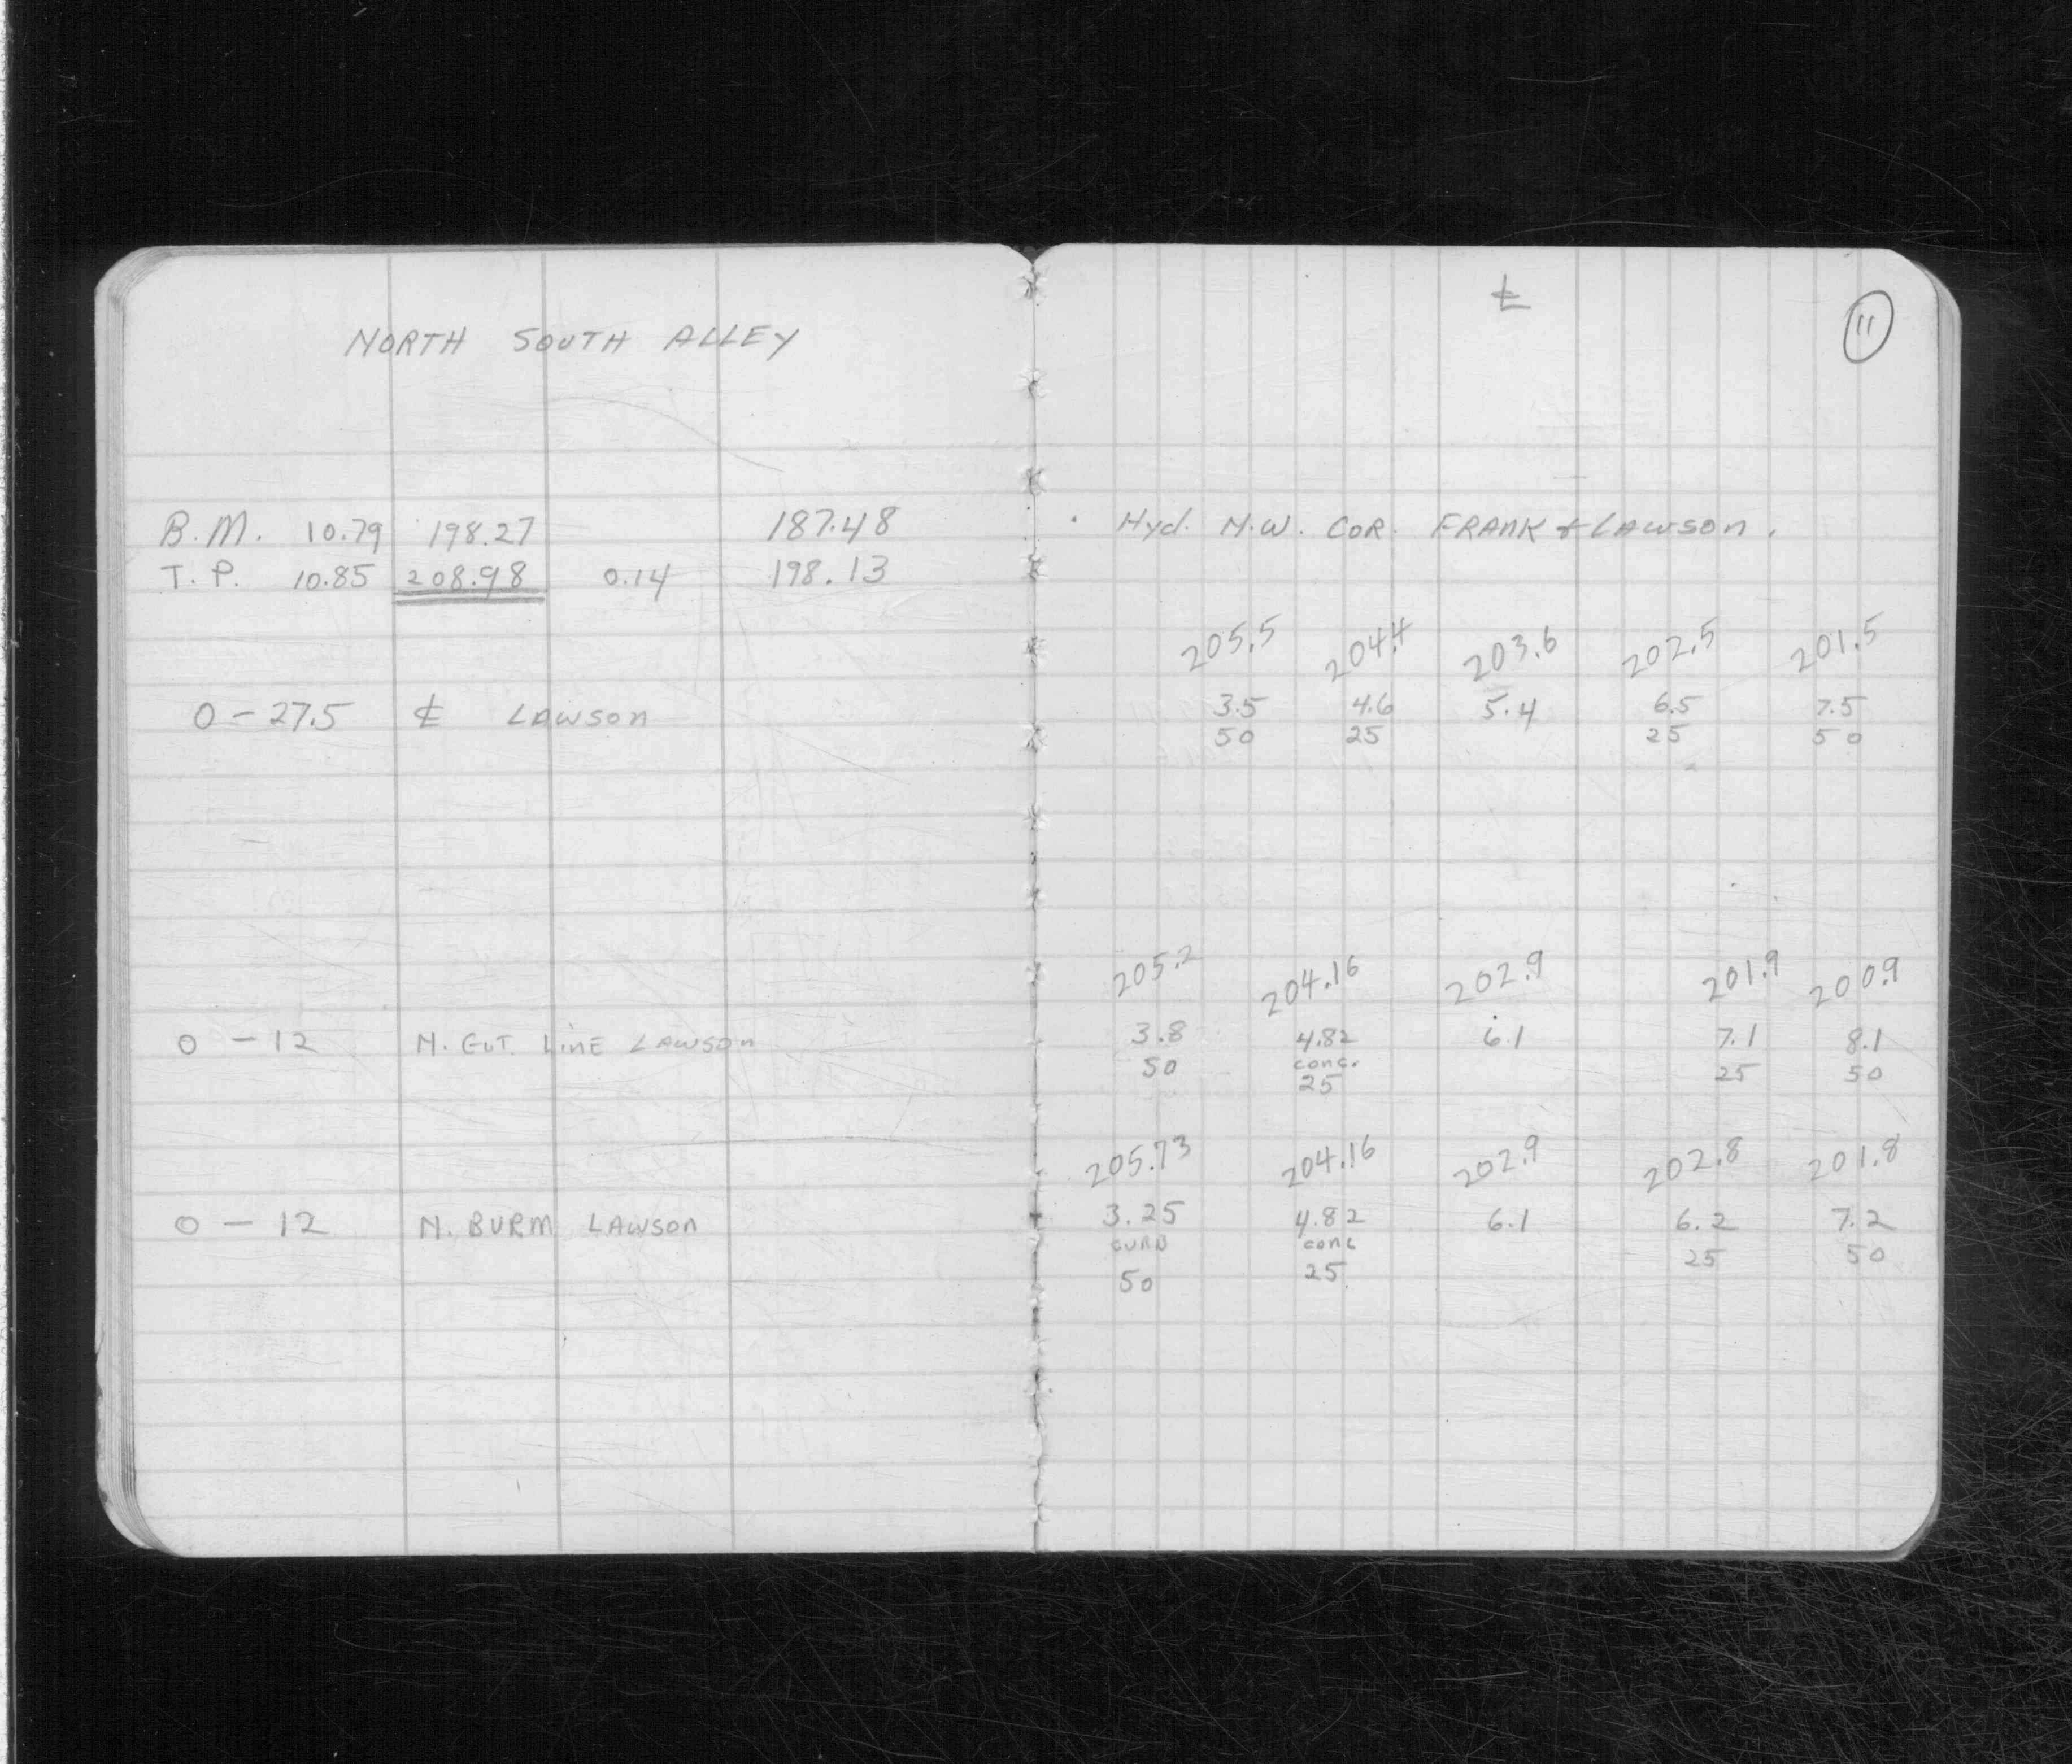 NORTH SOUTH ALLEY
B.M. 10.79 198.27 187.48
T.P. 10.85 208.98 0.14 198.13
0-27.5 ℄ LAWSON
0 -12 N. GUT. LINE LAWSON
0 - 12 N. BURM LAWSON
℄
11
Hyd. N.W. COR. FRANK & LAWSON.
205.5 204.4 203.6 202.5 201.5
3.5 4.6 5.4 6.5 7.5
50 25 25 50
205.2 204.16 202.9 201.9 200.9
3.8 4.82 6.1 7.1 8.1
50 conc. 25 50
25
205.73 204.16 202.9 202.8 201.8
3.25 4.82 6.1 6.2 7.2
CURB conc 25 50
50 25